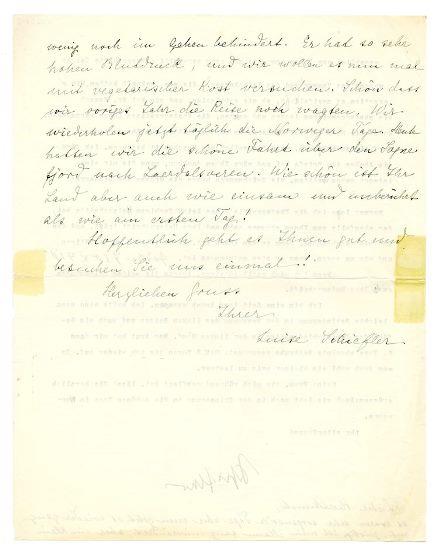 wenig noch im Gehen behindert. Er hat so sehr
hohen Blutdruck, und wir wollen es nun mal
mit vegetarischer Kost versuchen. Schön dass
wir voriges Jahr die Reise noch wagten. Wir
wiederholen jetzt täglich die Norweger Tage. Heute
hatten wir die schöne Fahrt über den Sogne
fjord nach Laerdalsoeren. Wie schön ist Ihr
Land aber auch wie einsam und unberührt
als wie am ersten Tag!
Hoffentlich geht es Ihnen gut und
besuchen Sie uns einmal!!
Herzlichen Gruss
Ihrer
Luise Schiefler